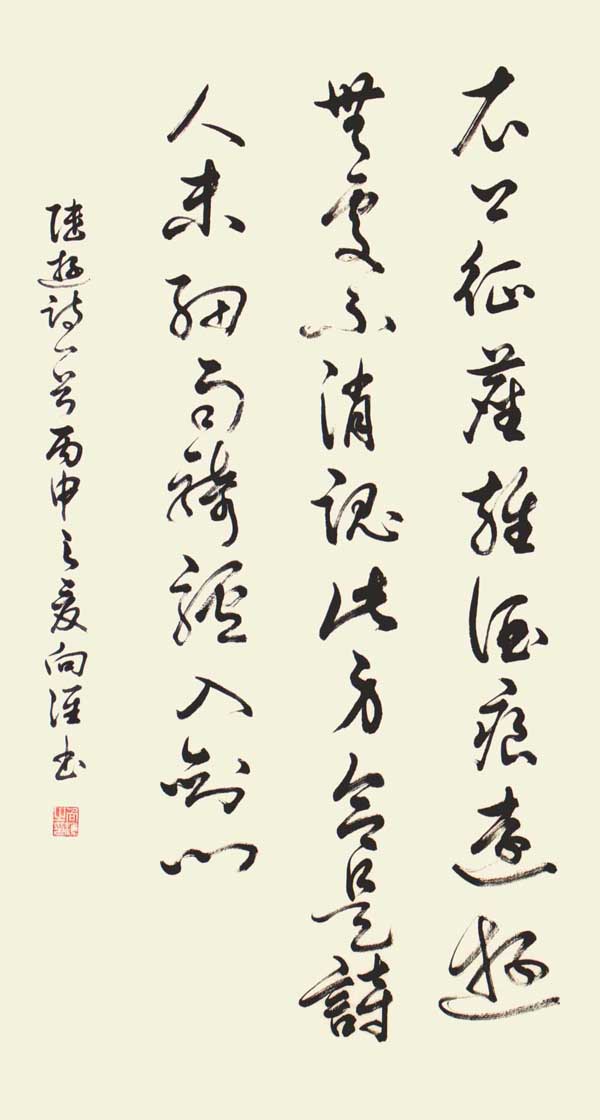 衣上征塵雜酒痕遠遊
無處不消魂此身合是詩
人未細雨騎驢入劍門
陸遊詩一首丙申之夏向淮书